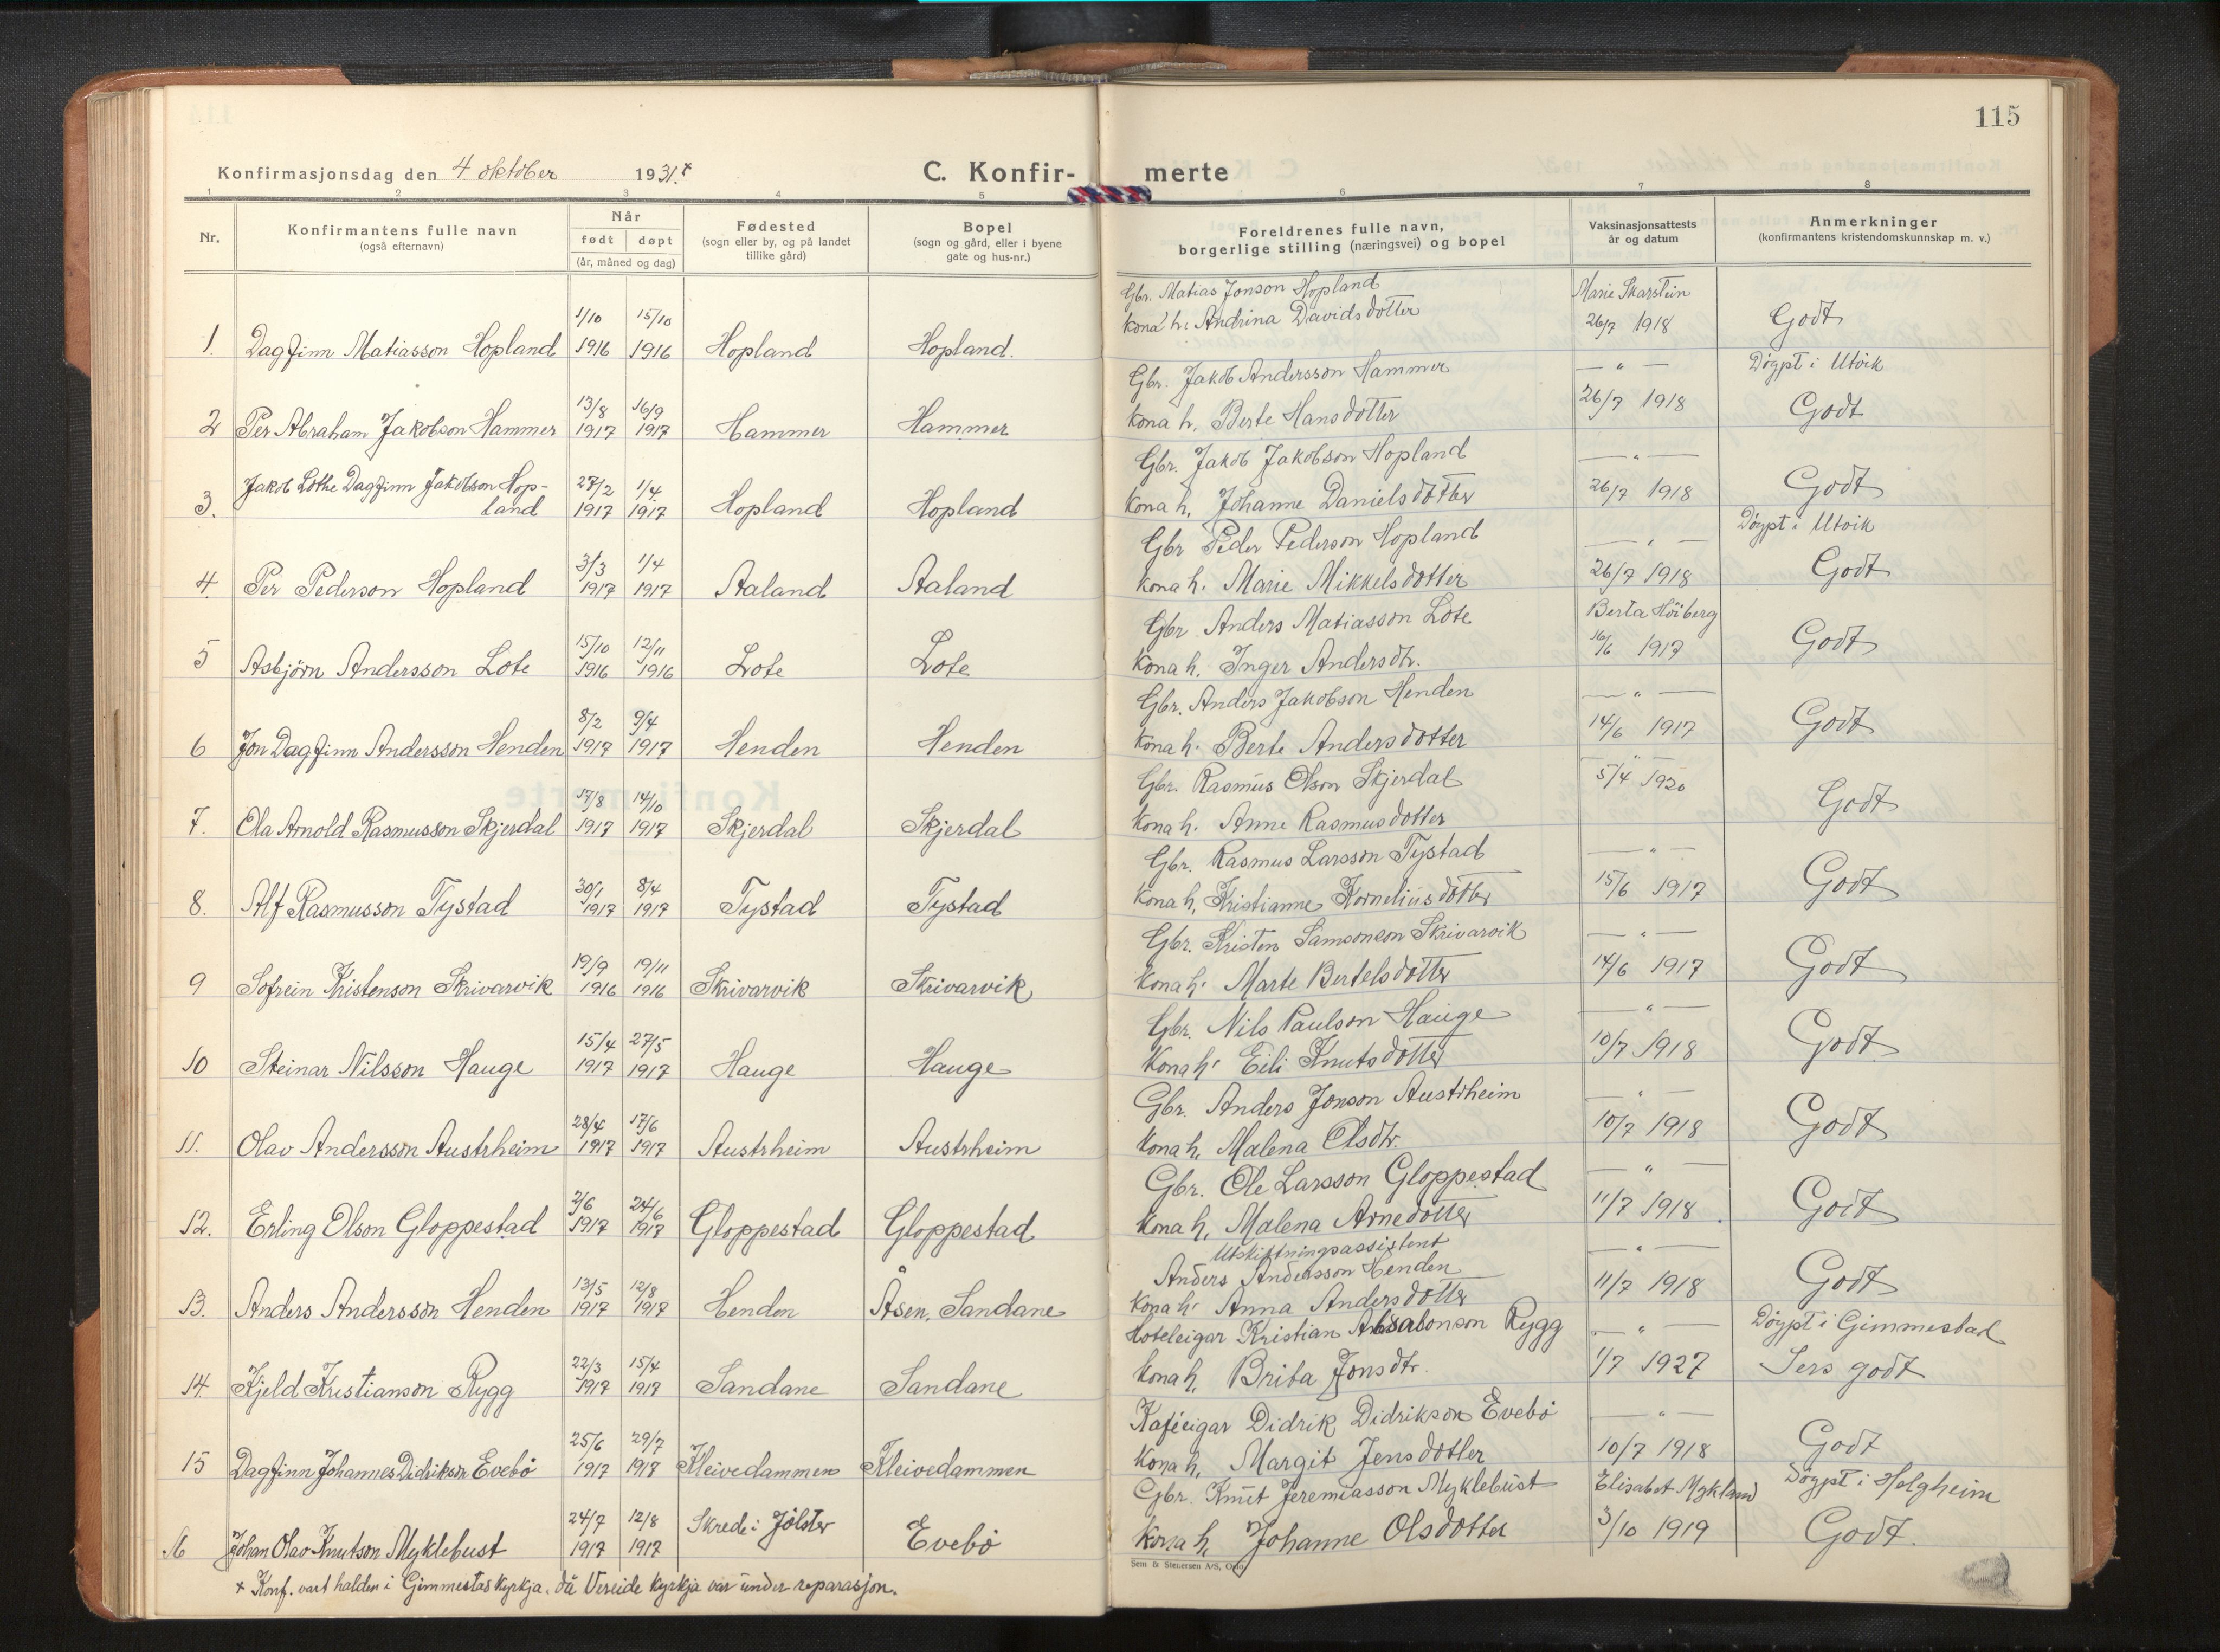 115
Konfirmasjonsdag den 4. oktober 1931.+
C. Konfir-merte
1 2 3 4 5 6 7 8
Nr.
Konfirmantens fulle navn
(også efternavn)
Når
født døpt
(år, måned og dag)
Fødested
(sogn eller by, og på landet
tillike gård)
Bopel
(sogn og gård, eller i byene
gate og hus-nr.)
Foreldrenes fulle navn,
borgerlige stilling (næringsvei) og bopel
Vaksinasjonsattests
år og datum
Anmerkninger
(konfirmantens kristendomskunnskap m. v.)
Gbr. Matias Jonson Hopland Marie Skarstein
1/10 15/10 Kona h. Andrina Davidsdotter 26/7 1918 Godt
1. Dagfinn Matiasson Hopland 1916 1916 Hopland Hopland.
Gbr. Jakob Andersson Hammer — " — Døypt i Utvik
13/8 16/9 Kona h. Berte Hansdotter 26/7 1918 Godt
2 Per Abraham Jakobson Hammer 1917 1917 Hammer Hammer
Gbr. Jakob Jakobson Hopland — " —
Jakob Lothe Dagfinn Jakobson Hop- 27/2 1/4 Kona h. Johanne Danielsdotter 26/7 1918 Godt
3. land 1917 1917 Hopland Hopland
Gbr Peder Pederson Hopland — " — Døypt i Utvik
3/3 1/4 Kona h. Marie Mikkelsdotter 26/7 1918 Godt
4. Per Pederson Hopland 1917 1917 Aaland Aaland
Gbr Anders Matiasson Lote Berta Höiberg
15/10 12/11 Kona h. Inger Andersdtr. 16/6 1917 Godt
5 Asbjörn Andersson Lote 1916 1916 Lote Lote
Gbr. Anders Jakobson Henden — " —
8/2 9/4 Kona h. Berte Andersdotter 14/6 1917 Godt
6 Jon Dagfinn Andersson Henden 1917 1917 Henden Henden
Gbr. Rasmus Olson Skjerdal — " — 5/4 1920
17/8 14/10 Kona h. Anne Rasmusdotter Godt
7. Ola Arnold Rasmusson Skjerdal 1917 1917 Skjerdal Skjerdal
Gbr. Rasmus Larsson Tystad — " —
30/1 8/4 Kona h. Kristianne Korneliusdotter 15/6 1917 Godt
8. Alf Rasmusson Tystad 1917 1917 Tystad Tystad
Gbr. Kristen Samsonson Skrivarvik — " —
19/9 19/11 Kona h. Marte Bertelsdotter 14/6 1917 Godt
9 Sofrein Kristenson Skrivarvik 1916 1916 Skrivarvik Skrivarvik
Gbr. Nils Paulson Hauge — " —
15/4 27/5 Kona h. Eili Knutsdotter 10/7 1918 Godt
10 Steinar Nilsson Hauge 1917 1917 Hauge Hauge
Gbr. Anders Jonson Austrheim — " —
28/4 17/6 Kona h. Malena Olsdtr. 10/7 1918 Godt
11. Olav Andersson Austrheim 1917 1917 Austrheim Austrheim
Gbr. Ole Larsson Gloppestad — " —
2/6 24/6 Kona h. Malena Arnedotter 11/7 1918 Godt
12. Erling Olson Gloppestad 1917 1917 Gloppestad Gloppestad
Utskiftningsassistent — " —
Anders Andersson Henden
13/5 12/8 Kona h. Anna Andersdotter 11/7 1918 Godt
13. Anders Andersson Henden 1917 1917 Henden Åsen, Sandane
Hoteleigar Kristian Absalonson Rygg — " — Døypt i Gimmestad
22/3 15/4 Kona h. Brita Jonsdtr. 1/7 1927 Sers godt
14. Kjeld Kristianson Rygg 1917 1917 Sandane Sandane
Kaféeigar Didrik Didrikson Evebø — " —
25/6 29/7 Kona h. Margit Jensdotter 10/7 1918 Godt
15 Dagfinn Johannes Didrikson Evebø 1917 1917 Kleivedammen Kleivedammen
Gbr. Knut Jeremiasson Myklebust Elisabet Mykland Døypt i Helgheim
24/7 12/8 Skrede i Jølster Kona h. Johanne Olsdotter 3/10 1919 Godt.
16 Johan Olav Knutson Myklebust 1917 1917 Evebø
Sem & Stenersen A/S, Oslo
+ Konf. vart halden i Gimmestas kyrkja, då Vereide kyrkja var under reparasjon.